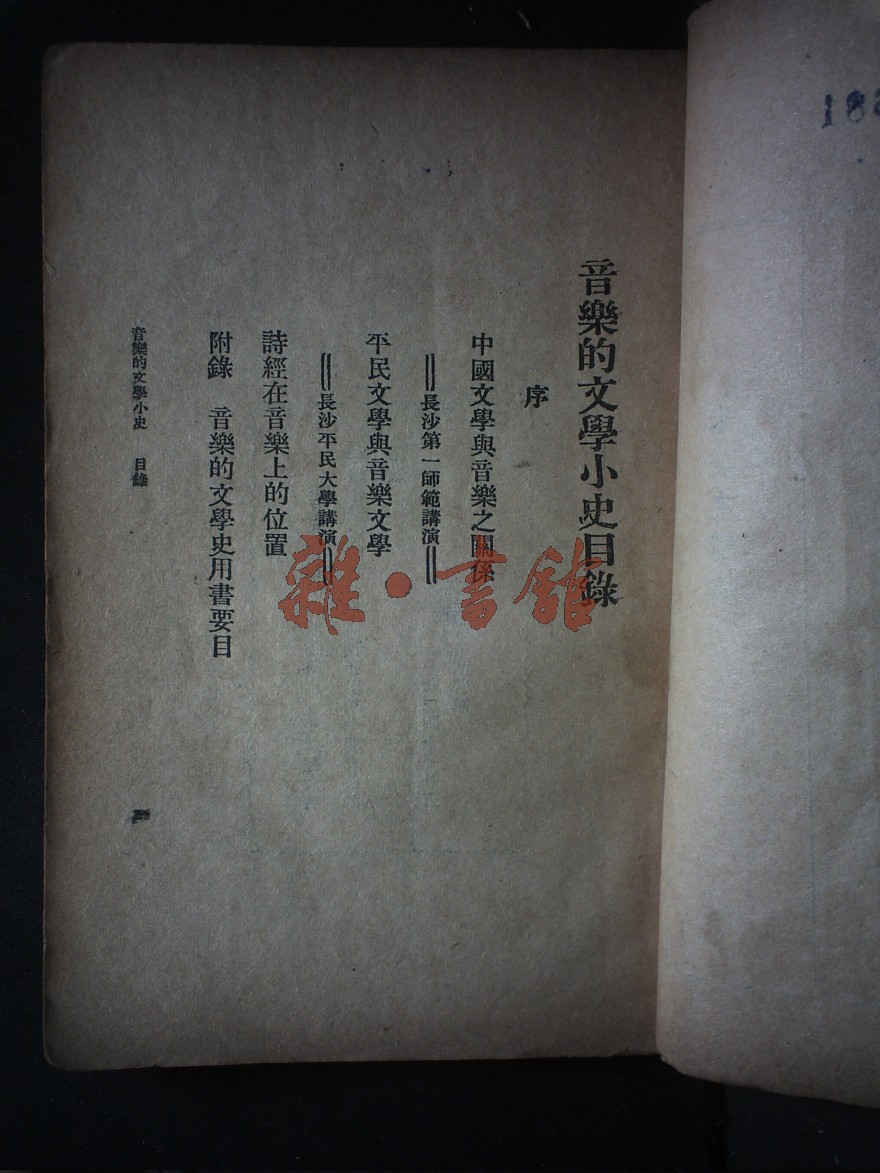 音樂的文學小史目錄
序
中國文學與音樂之關係
══長沙第一師範講演══
平民文學與音樂文學
══長沙平民大學講演══
詩經在音樂上的位置
附錄　音樂的文學史用書要目
音樂的文學小史　目錄
雜·書館